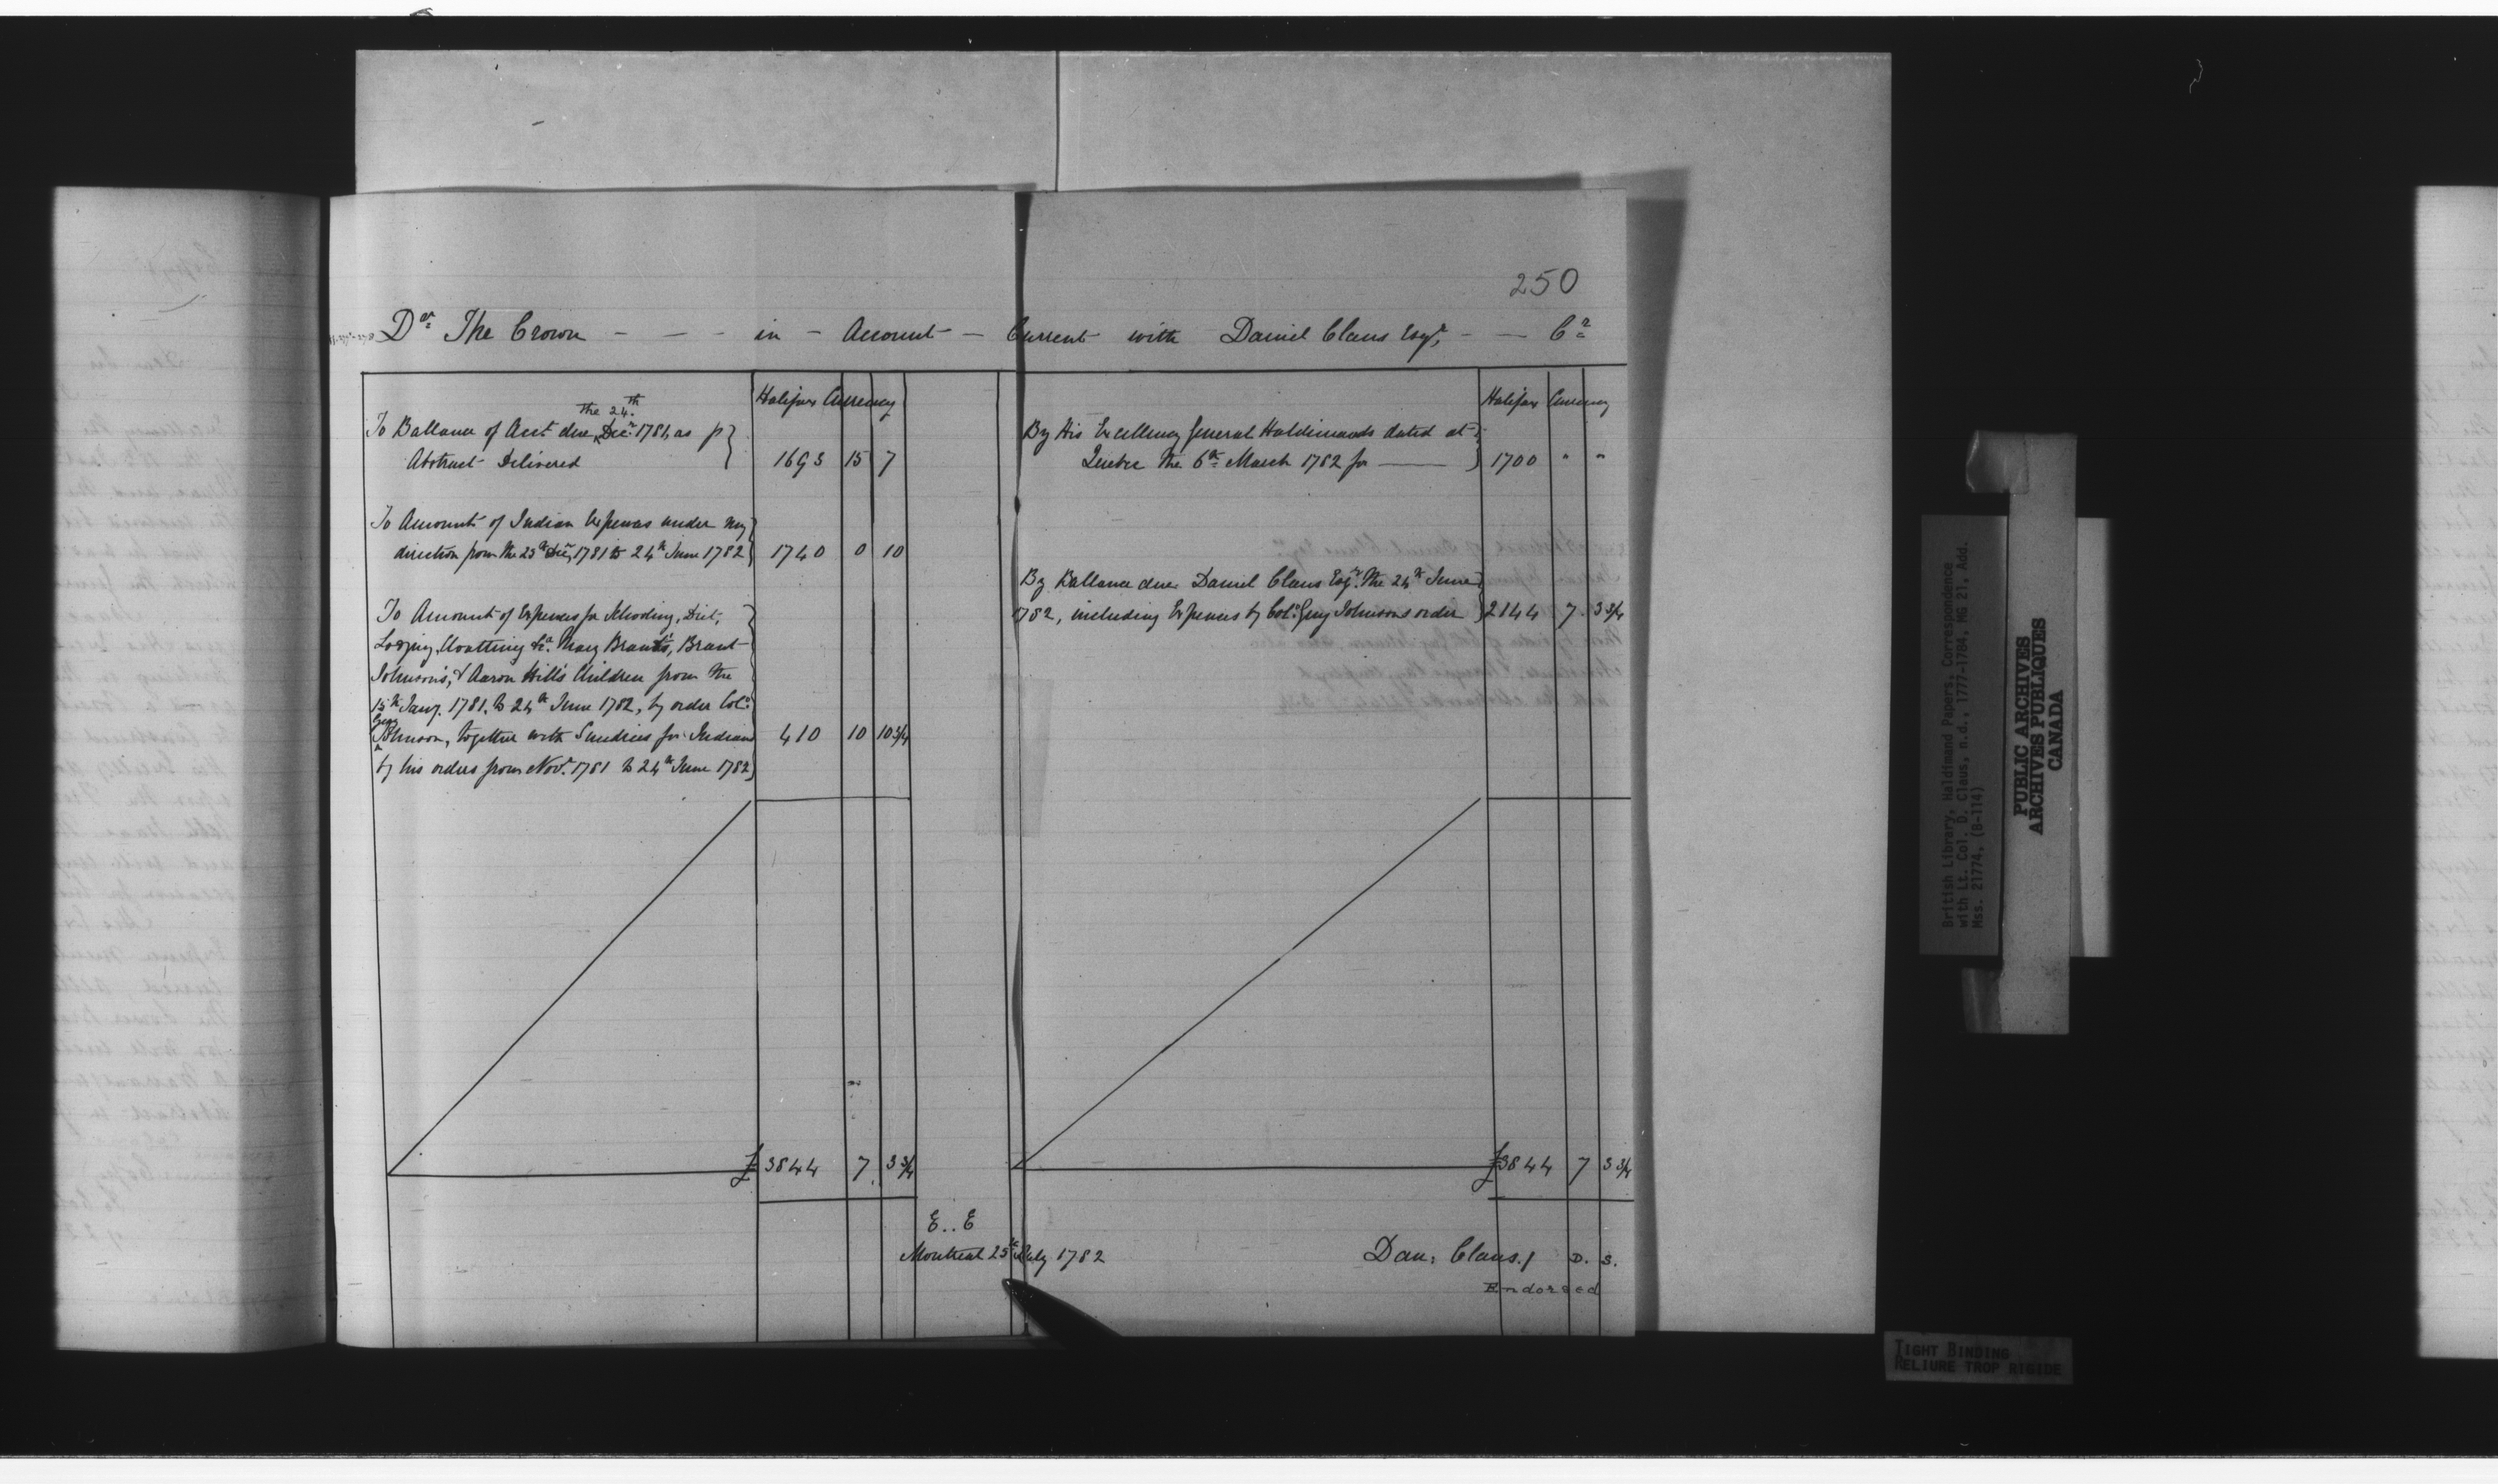 250
Dr. The Crown - - - in - Account - Current with Daniel Claus Esqr. - - Cr.
Halifax Currency
the 24th
To Ballance of Acct due Decr. 1781, as p
Abstract Delivered 1693 15 7
To Amount of Indian Expences under my
direction from the 25th Decr 1781 to 24th June 1782 1740 0 10
To Amount of Expences for Schooling, Diet,
Lodging, Cloatting &ca. Mary Brants, Brant
Johnson's, & Aaron Hill's Children from the
15th Jany. 1781, to 24th June 1782, by order Colo.
Guy
Johnson, together with Sundries for Indians 410 10 10 3/4
by his orders from Novr. 1781 to 24th June 1782
£ 3844 7 3 3/4
Halifax Currency
By His Excellency General Haldimands dated at
Quebec the 6th March 1782 for —— 1700 " "
By Ballance due Daniel Claus Esqr. the 24th June
1782, including Expences by Colo. Guy Johnsons order 2144 7 3 3/4
£3844 7 3 3/4
E.. E
Montreal 25th July 1782
Dan: Claus./ D. S.
Endorsed
British Library, Haldimand Papers, Correspondence
with Lt. Col. D. Claus, n.d., 1777-1784, MG 21, Add.
Mss. 21774, (B-114)
PUBLIC ARCHIVES
ARCHIVES PUBLIQUES
CANADA
TIGHT BINDING
RELIURE TROP RIGIDE